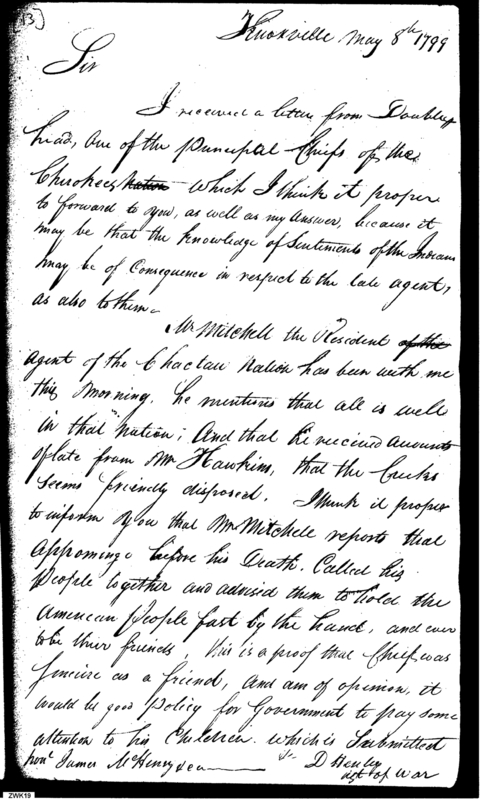 3]
Knoxville May 8th 1799
Sir
I received a letter from Double
head, one of the Principal Chiefs of the
Cherokees Nation which I think it proper
to forward to you, as well as my answer, because it
may be that the knowledge of Sentiments of the Indians
may be of Consequence in respect to the late agent,
as also to them.
Mr Mitchell the Resident of the
agent of the Chactaw Nation has been with me
this Morning. he mentions that all is well
in that Nation; And that he received accounts
of late from Mr Hawkins, that the Creeks
seems friendly disposed. I think it proper
to inform you that Mr Mitchell reports that
Appominge before his Death. Called his
People together and advised them to hold the
American People fast by the hand, and ever
to be their friends, this is a proof that Chief was
sincere as a friend, and am of opinion, it
would be good Policy for Government to pay some
attention to his Children. which is Submitted
honl James McHenry
D Henley
agt of War
ZWK19